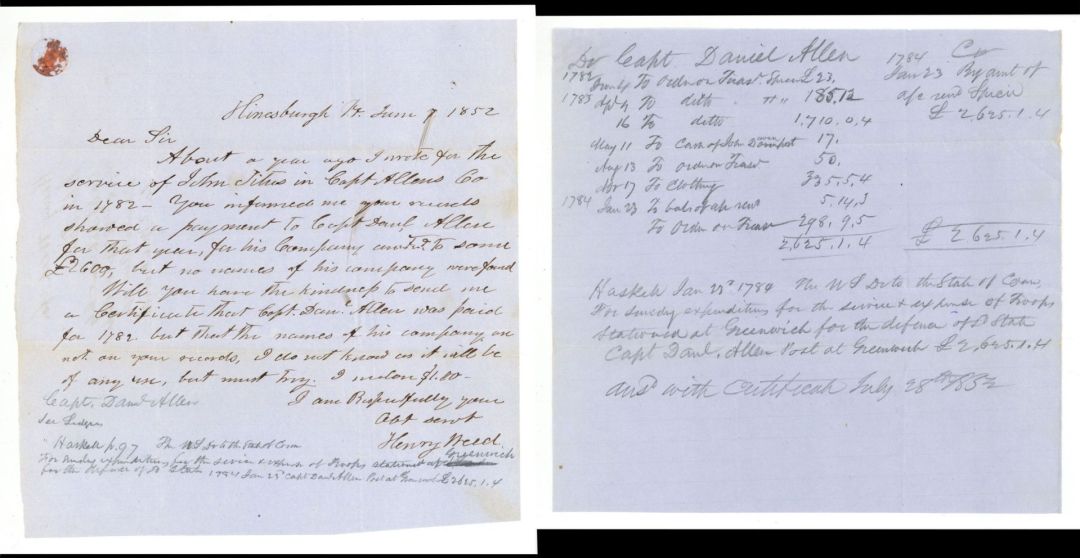 Hinesburgh Vt. June 7 1852
Dear Sir
About a year ago I wrote for the
service of John Titus in Capt Allens Co
in 1782 - You informed me your records
showed a payment to Capt Danl Allen
for that year, for his Company amount to some
£2600, but no names of his company were found
Will you have the kindness to send me
a Certificate that Capt. Danl. Allen was paid
for 1782 but that the names of his company are
not on your records, I do not know as it will be
of any use, but must try. I inclose $1.00 -
I am Respectfully your
Obt servt
Henry Weed.
Capt. Danl Allen
See Ledger
" Haskell p. 97 The US Dr to the State of Conn
For sundry expenditures for the service & expense of Troops stationed at Greenwich
for the defence of sd State 1784 Jan 23d Capt Danl Allen Post at Greenwich £2625.1.4
Dr Capt. Daniel Allen
1782 To Ordr on Treasr £23,
1783 Apl 4 To ditto " " 185.12
16 To ditto 1,710.0.4
May 11 To Cash of John Davenport 17.
Aug 13 To ordr on Treasr 50.
17 To Clothing 335.5.4
1784 Jan 23 To bal of 5.14.3
To Ordr on Treasr 298.9.5
2,625.1.4
1784 Cr
Jan 23 By amt of
a/c
£ 2,625.1.4
£ 2625.1.4
Haskell Jan 23d 1784 The U S Dr to the State of Conn,
For sunday expenditures for the service & expense of Troops
stationed at Greenwich for the defence of sd State
Capt Danl. Allen Post at Greenwich £2,625.1.4
Ansd with Certificate July 28th 1852